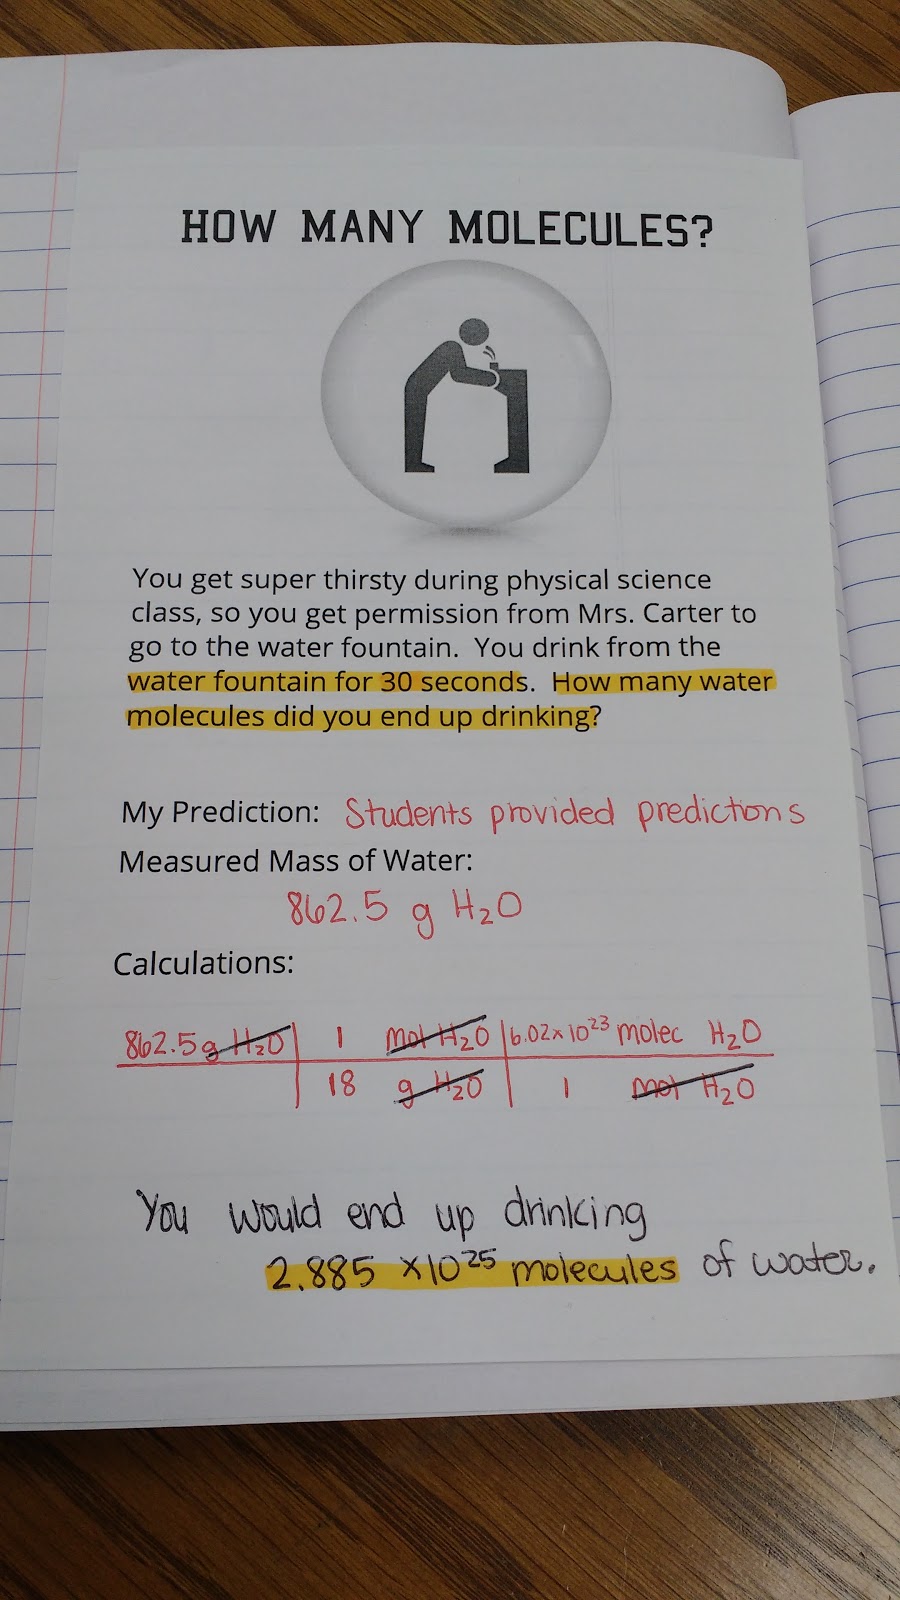 HOW MANY MOLECULES?
You get super thirsty during physical science
class, so you get permission from Mrs. Carter to
go to the water fountain. You drink from the
water fountain for 30 seconds. How many water
molecules did you end up drinking?
My Prediction: Students provided predictions
Measured Mass of Water:
862.5 g H₂O
Calculations:
862.5 g H₂O | 1 mol H₂O | 6.02×10²³ molec H₂O
18 g H₂O | 1 mol H₂O
You would end up drinking
2.885 ×10²⁵ molecules of water.